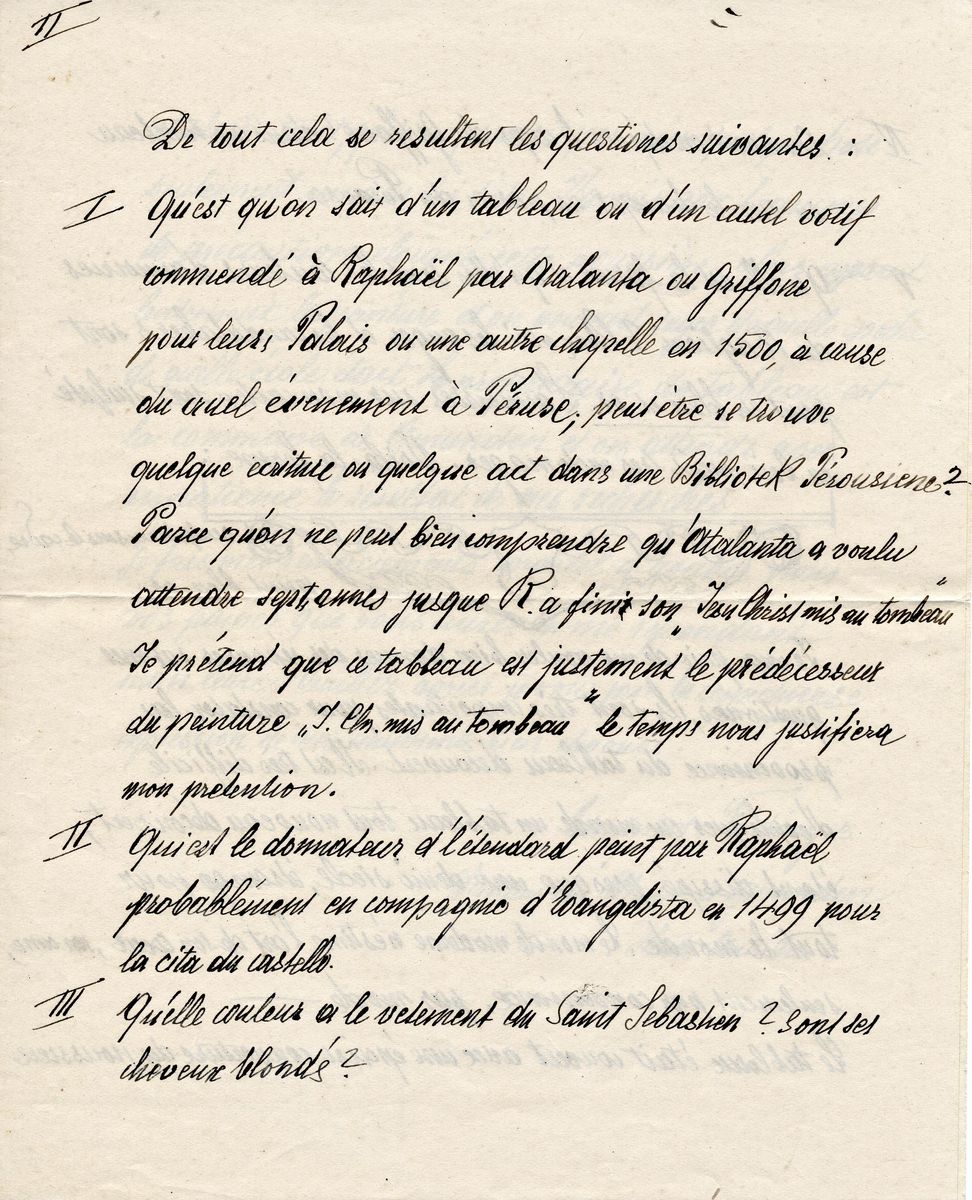 II
De tout cela se resultent les questiones suivantes :
I Qu'est qu'on sait d'un tableau ou d'un autel votif
commendé à Raphaël par Atalanta ou Griffone
pour leurs Palais ou une autre chapelle en 1500, à cause
du cruel évenement à Péruse; peut être se trouve
quelque écriture ou quelque act dans une Bibliotek Pérousiene?
Parce qu'on ne peut bien comprendre qu'Atalanta a voulu
attendre sept annes jusque R. a finit son „Jesu Christ mis au tombeau"
Je prétend que ce tableau est justement le prédécesseur
du peinture „J. Ch. mis au tombeau" le temps nous justifiera
mon prétention.
II Qui est le donnateur d'l'étendard peint par Raphaël
probablément en compagnie d'Evangelista en 1499 pour
la cita du castello.
III Qu'elle couleur a le vetement du Saint Sebastien? Sont ses
cheveux blonds?